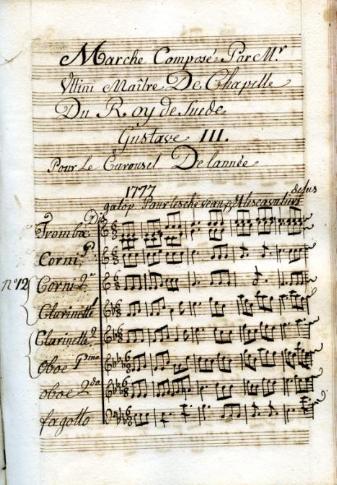 Marche Composé Par Mr
Uttini Maître De Chapelle
Du Roy de Suede
Gustave III.
Pour Le Carousel De l'année
1777
galop Pour les chevaux
Tromba
Corni 1º
nº 12
Corni 2º
Clarinette 1
Clarinette 2
Oboe Pimo
oboe 2do
fagotto